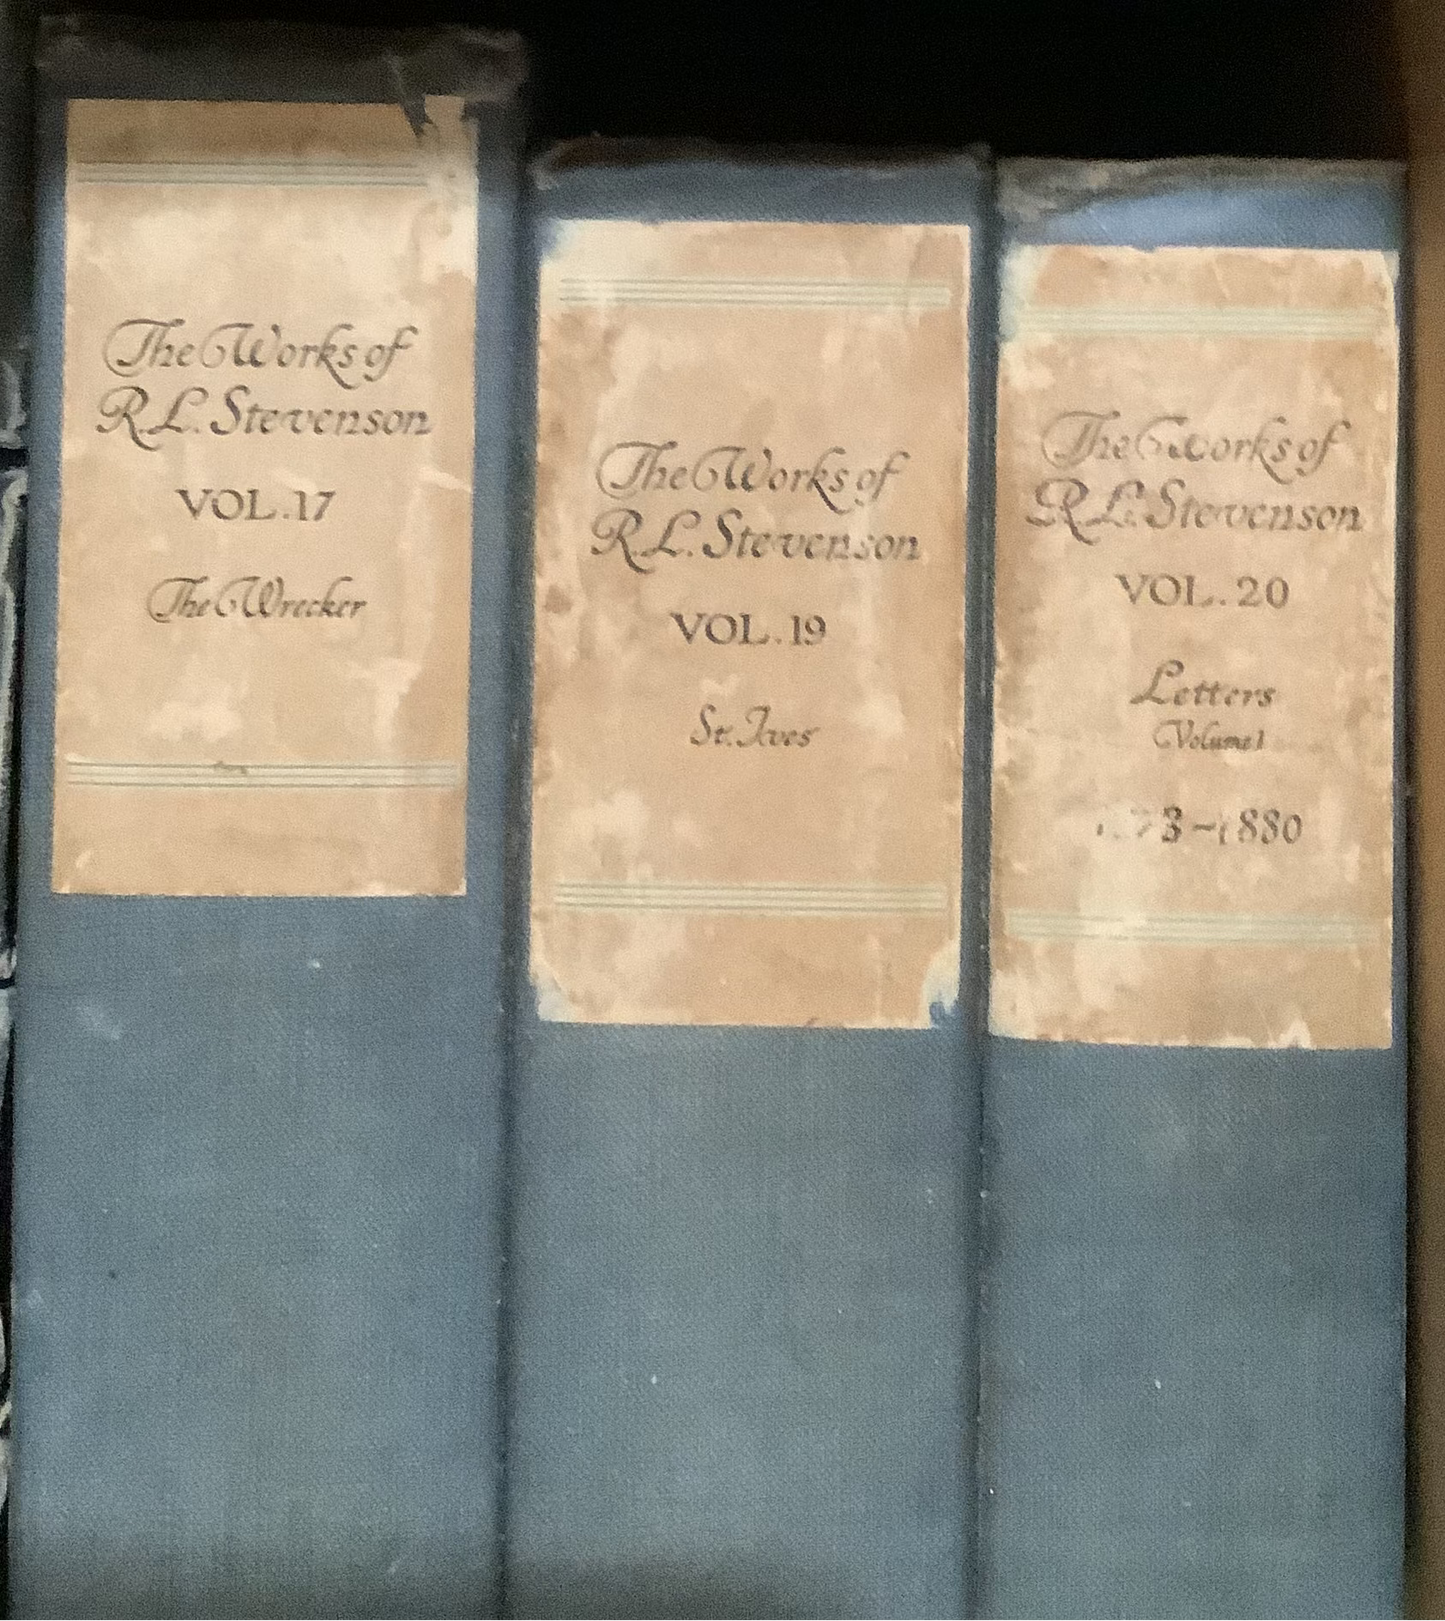 The Works of
R.L. Stevenson
VOL. 17
The Wrecker
The Works of
R.L. Stevenson
VOL. 19
St. Ives
The Works of
R.L. Stevenson
VOL. 20
Letters
Volume 1